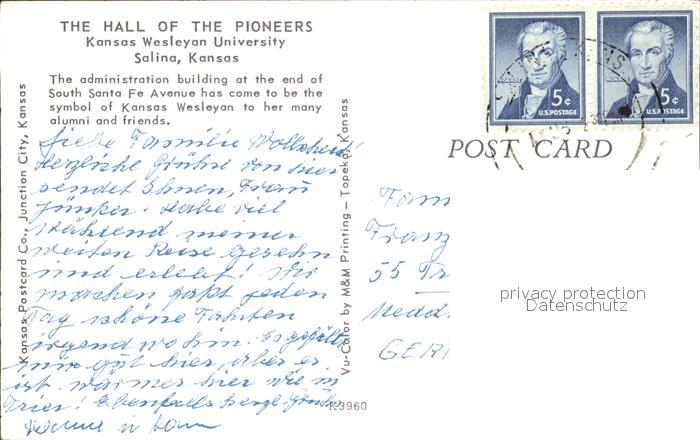 THE HALL OF THE PIONEERS
Kansas Wesleyan University
Salina, Kansas
The administration building at the end of
South Santa Fe Avenue has come to be the
symbol of Kansas Wesleyan to her many
alumni and friends.
Kansas Postcard Co., Junction City, Kansas
Liebe Familie
Herzliche Grüße von hier
sendet Ihnen, Frau
Jünker. Habe viel
während meiner
weiten Reise gesehn
und erlebt! Wir
machen fast jeden
Tag schöne Fahrten
irgend wohin. Es gefällt
mir gut hier, aber es
ist wärmer hier wie in
Trier! Ebenfalls herzl. Grüße
Vu-Color by M&M Printing – Topeka, Kansas
K3960
5c
U.S.POSTAGE
5c
U.S.POSTAGE
POST CARD
Fam
Franz
55 Tr
GER
privacy protection
Datenschutz